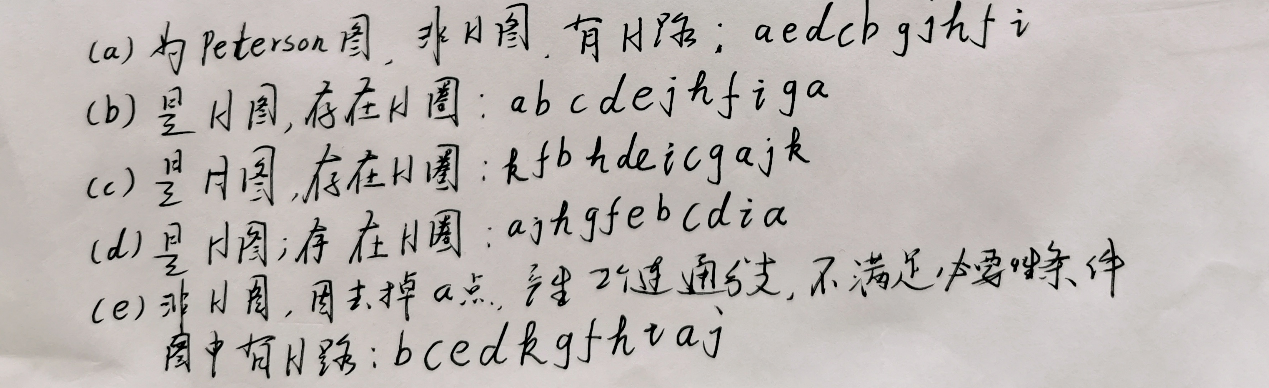 (a) 为Peterson图,非H图,有H路:aedcbgjhfi
(b) 是H图,存在H圈:abcdejhfiga
(c) 是H图,存在H圈:kfbhdeicgajk
(d) 是H图;存在H圈:ajhgfebcdia
(e) 非H图,因去掉a点,产生2个连通分支,不满足必要性条件
图中有H路:bcedkgfhiaj